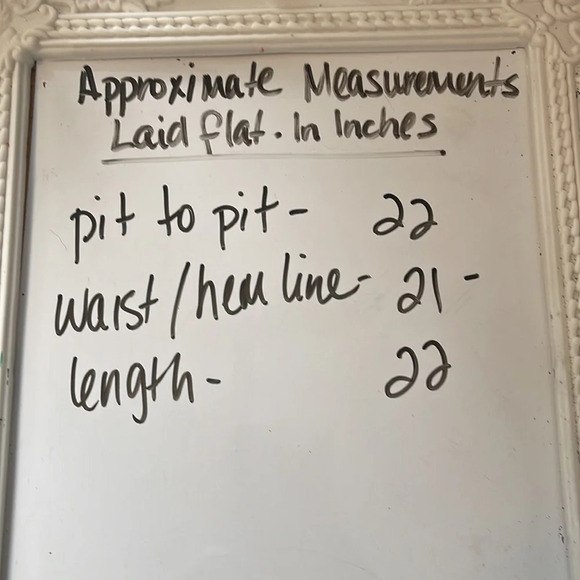 Approximate Measurements
Laid flat. In Inches
pit to pit - 22
waist/hem line - 21 -
length - 22